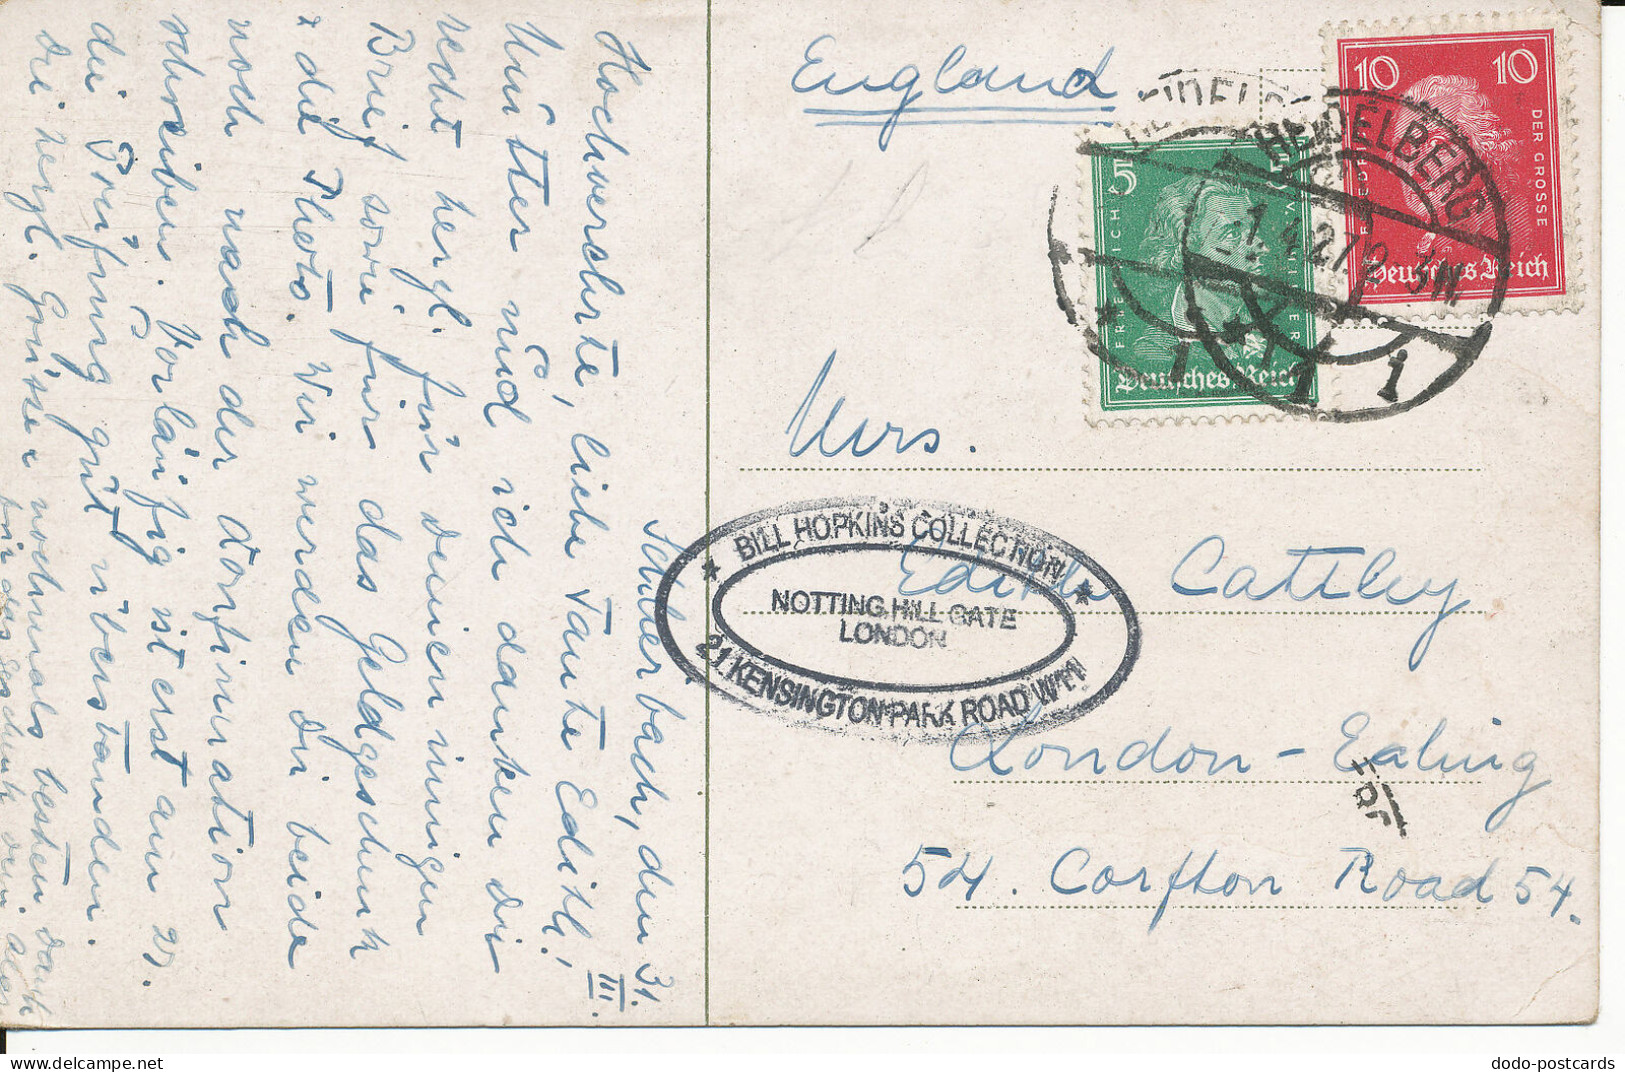 Schlierbach, den 31. III.
Hochverehrte, liebe Tante Edith!
Mutter und ich danken Dir
recht herzl. für Deinen innigen
Brief sowie für das Geldgeschenk
x die Photo. Wir werden Dir beide
noch nach der Konfirmation
schreiben. Vorläufig ist erst am 27.
die Prüfung gut überstanden.
Dir herzl. Grüsse x nochmals besten Dank
für das Geschenk
England
10 10
DER GROSSE
Deutsches Reich
5
Deutsches Reich
HEIDELBERG
HEIDELBERG
-1.4.27. 2-3N.
* 1
1
1
Mrs.
Edith Cattley
London - Ealing
54. Corfton Road 54.
* BILL HOPKINS COLLECTION *
NOTTING HILL GATE
LONDON
21 KENSINGTON PARK ROAD W11
dodo-postcards